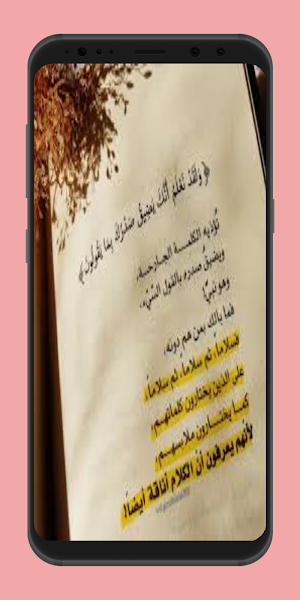 ﴿ وَلَقَدْ نَعْلَمُ أَنَّكَ يَضِيقُ صَدْرُكَ بِمَا يَقُولُونَ ﴾
تُؤذيه الكلمـــة الجــارحــة،
ويضيقُ صدره بالقول السّيّء،
وهو نبيّ!
فما بالك بمن هم دونه،
فسلاما، ثم سلاما، ثم سلاماً،
على الذين يختارون كلماتهـــم،
كمـا يختـــارون ملابسهـــم،
لأنهم يعرفون أنّ الكلام أناقة أيضاً!